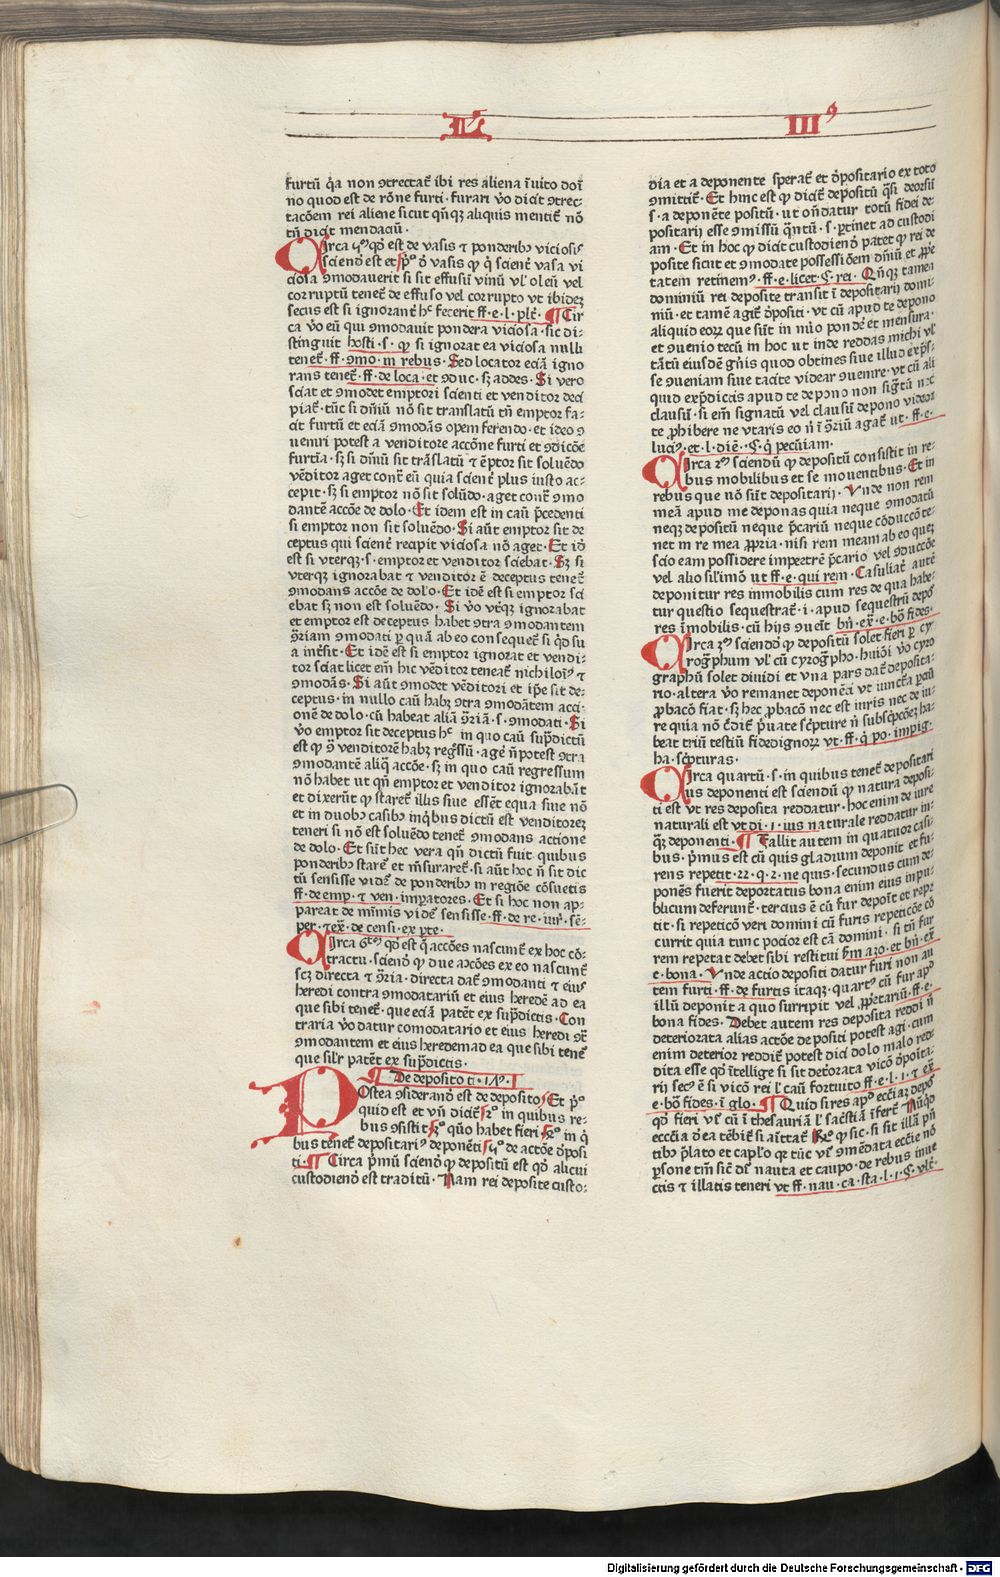 L IIIꝰ
furtū q̄a non ꝯtrectat̄ ibi res aliena īuito doī
no quod est de rōne furti. furari ṽo dicit ꝯtrec-
tacōem rei aliene sicut qn̄qꝫ aliquis mentit̄ nō
tn̄ dicit mendaciū.
Circa qᵒ est de vasis ⁊ ponderibꝰ viciosis
sciend est et pᵒ ꝺ vasis ꝙ q̇ scient̄ vasa vi
ciosa ꝯmodauerit si sit effusū vinū vl' oleū vel
corruptū tenet̄ de effuso vel corrupto vt ibidez
secus est si ignorant̄ hᶜ fecerit ff·e·l·plt̄· ¶ Cir
ca ṽo eū qui ꝯmodauit pondera viciosa· sic di-
stinguit hosti·s· ꝙ si ignorat ea viciosa nulli
tenet̄· ff·ꝯmo·in rebus· Sed locator eciā igno
rans tenet̄ ff·de loca· et ꝯduc· sꝫ addes· Si vero
sciat et ꝯmodet emptori scienti et venditor deci
piat̄· tūc si dn̄iū nō sit translatū tn̄ emptor fa-
cit furtū et eciā ꝯmodās opem ferendo· et ideo ꝯ
ueniri potest a venditore accōne furti et ꝯdicōe
furtīa· sꝫ si dn̄iū sit trāslatū ⁊ ēptor sit soluēdo
vēditor aget cont̄ eū quia scient̄ plus iusto ac-
cepit· sꝫ si emptor nō sit solūdo· aget cont̄ ꝯmo
dantē accōe de dolo· Et idem est in caū p̄cedenti
si emptor non sit soluēdo· Si aūt emptor sit de
ceptus qui scient̄ recipit viciosa nō aget· Et iō
est si vterqꝫ·s· emptor et venditor sciebat· Sꝫ si
vterqꝫ ignorabat ⁊ venditor ē deceptus tenet̄
ꝯmodans accōe de dolo· Et idē est si emptor sci
ebat sꝫ non est soluēdo· Si ṽo vt̄qꝫ ignorabat
et emptor est deceptus habet ꝯtra ꝯmodantem
ꝯ̄riam ꝯmodati per quā ab eo consequet̄ si qͥd su
a int̄sit· Et idē est si emptor ignorat et vendi-
tor sciat licet em̄ hic vēditor teneat̄ nichiloīꝰ ⁊
ꝯmodās· Si aūt ꝯmodet vēditori et ip̄e sit de-
ceptus· in nullo caū habꝫ ꝯtra ꝯmodātem acci-
onē de dolo· cū habeat aliā ꝯ̄riā·s· ꝯmodati· Si
ṽo emptor sit deceptus hᶜ in quo caū sup̄dictū
est ꝙ ꝯ̄ venditorē habꝫ reg̃ssū· age n̄ potest ꝯtra
ꝯmodantē aliq̄ accōe· sꝫ in quo caū regressum
nō habet ut qn̄ emptor et venditor ignorabāt
et dixerūt ꝙ staret̄ illis siue essēt equa siue nō
et in duobꝰ casibꝰ inqͥbus dictū est venditorez
teneri si nō est soluēdo tenet̄ ꝯmodans actione
de dolo· Et sūt hec vera qn̄ dictū fuit quibus
ponderibꝰ staret̄ et m̄suraret̄· si aūt hoc n̄ sit dic
tū sensisse vidēr de ponderibꝰ in regiōe cōsuetis
ff·de emp·⁊ ven·imꝑatores· Et si hoc non ap-
pareat de mīmis vidēr sensisse·ff·de re·iur̄·sē-
per·⁊ex̄·de censi·ex ꝑte·
Circa 6ᵗᵒ qᵒ est q̄ accōes nascunt̄ ex hoc cō-
tractu· sciend ꝙ due accōes ex eo nascunt̄
scꝫ directa ⁊ ꝯ̄ria· directa dat̄ ꝯmodanti ⁊ eius
heredi contra ꝯmodatariū et eius heredē ad ea
que sibi tenet̄· que eciā patēt ex sup̄dictis· Con
traria ṽo datur comodatario et eius heredi ꝯt̄
ꝯmodantem et eius heredem ad ea que sibi tenet̄
que sil'r patēt ex sup̄dictis·
¶ De deposito ti·
Postea ꝯsiderand est de deposito· Et pᵒ
quid est et vn̄ dicit̄ 2ᵒ in quibus re-
bus ꝯsistit 3ᵒ quō habet fieri 4ᵒ in q̇
bus tenet̄ depositariꝰ deponēti 5ᵒ de actōe ꝺposi
ti·¶ Circa p̄mū sciend ꝙ depositū est qᵒ alicui
custodiend est traditū· Nam rei deposite custo-
dia et a deponente sperat̄ et ꝺpositario ex toto
ꝯmittit̄· Et hinc est ꝙ dicit̄ depositū q̄si deorsū
·s· a deponēte positū· ut on̄datur totū fidei de-
positarij esse ꝯmissū qn̄tū ·s· ꝑtinet ad custodi
am· Et in hoc ꝙ dicit custodiend patet ꝙ rei de
posite sicut et ꝯmodate possessiōem dn̄iū et ꝓp̄e
tatem retinemꝰ·ff·e·licet·§·rei· Qn̄qꝫ tamen
dominiū rei deposite transit ī depositarij domi-
niū· et tamē agit̄ ꝺpositi· vt cū apud te depono
aliquid eorꝫ que sūt in nūo pondē et mensura·
et ꝯuenio tecū in hoc ut inde reddas michi vl'
tātū eiusdē gn̄is quod obtines siue illud exp̄s-
se ꝯueniam siue tacite videar ꝯuenire· vt cū ali
quid exp̄dictis apud te depono non sig̃tū nec
clausū· si em̄ signatū vel clausū depono videor
te ꝓhibere ne vtaris eo n̄ ī ꝯ̄riū agat̄ ut·ff·e·
luciꝰ·et·l·diē·§·q̇ pecūiam·
Circa 2ᵐ sciendū ꝙ depositū consistit in re-
bus mobilibus et se mouentibus· Et in
rebus que nō sūt depositarij· Vnde non rem
meā apud me deponas quia neque ꝯmodatū
neqꝫ depositū neque p̄cariū neque cōduccō te-
net in re mea ꝓpria· nisi rem meam ab eo quez
scio eam possidere impetrē p̄cario vel ꝯduccōe
vel alio sil'imō ut ff·e·qui rem· Casualit̄ autē
deponitur res immobilis cum res de qua habe-
tur questio sequestrat̄·i·apud sequestrū depoᵗ
res īmobilis· cū hijs ꝯueīt bn̄·ex̄·e·bō fides·
Circa 3ᵐ sciendū ꝙ depositū solet fieri ꝑ cy
rog̃phum vl' cū cyrog̃pho· huiōi ṽo cyro
graphū solet diuidi et vna pars dat̄ deposita-
rio· altera ṽo remanet deponēti vt iuncta ꝑ eū
ꝓbacō fiat· sꝫ hec ꝓbacō nec est iuris nec de iu-
re quia nō c̄dit̄ p̄uate sc̄pture n̄ subsc̄pcōeꝫ ha-
beat triū testiū fidedignorꝫ vt·ff·q̇ po·impig·
ha·sc̄pturas·
Circa quartū·s·in quibus tenet̄ depositari
us deponenti est sciendū ꝙ natura deposi-
ti est vt res deposita reddatur· hoc enim de iure
naturali est vt di·i·ius naturale reddatur in-
q̄ꝫ deponenti·¶ Fallit autem in quatuor casi-
bus· p̄mus est cū quis gladium deponit et fu-
rens repetit·22·q·2·ne quis· secundus cum de-
ponēs fuerit deportatus bona enim eius in pu-
blicum deferunt̄· tercius ē cū fur depoīt et repe
tit· si repeticō veri domini cū furis repeticōe cō
currit quia tunc pocior est cā domini· si tn̄ fur
rem repetat debet sibi restitui sm̄ azo·et bn̄·ex̄
e·bona· Vnde actio depositi datur furi non au
tem furti·ff·de furtis itaqꝫ· quartꝰ cū fur apᵈ
illū deponit a quo surripit vel ꝓp̄etariū·ff·e·
bona fides· Debet autem res deposita reddi n̄
deteriorata alias actōe depositi potest agi· cum
enim deterior reddit̄ potest dici dolo malo red-
dita esse qᵒ ītellige si sit det̄orata vicō ꝺpoīta-
rij secꝰ ē si vicō rei l' caū fortuito ff·e·l·i·⁊ ex̄
e·bō fides·ī glo·¶ Quid si res apᵈ ecciaꝫ depoᵗ
qᵒ fieri vl' cū ī thesauriā l' sac̄stiā īferēt̄ Nūqͥd
ecciā ꝺ ea tēbit̄ si aīttat̄ R̄ᵒ ꝙ sic· si sit illā pn̄
tibꝰ p̄lato et cap̄lo qꝛ tūc vl' ꝯmēdata eccīe nō
ꝑsone tm̄ sic̄ dr̄ nauta et caupo· de rebus inue
ctis ⁊ illatis teneri vt ff·nau·ca·sta·l·i·§·vlt̄·
Digitalisierung gefördert durch die Deutsche Forschungsgemeinschaft - DFG